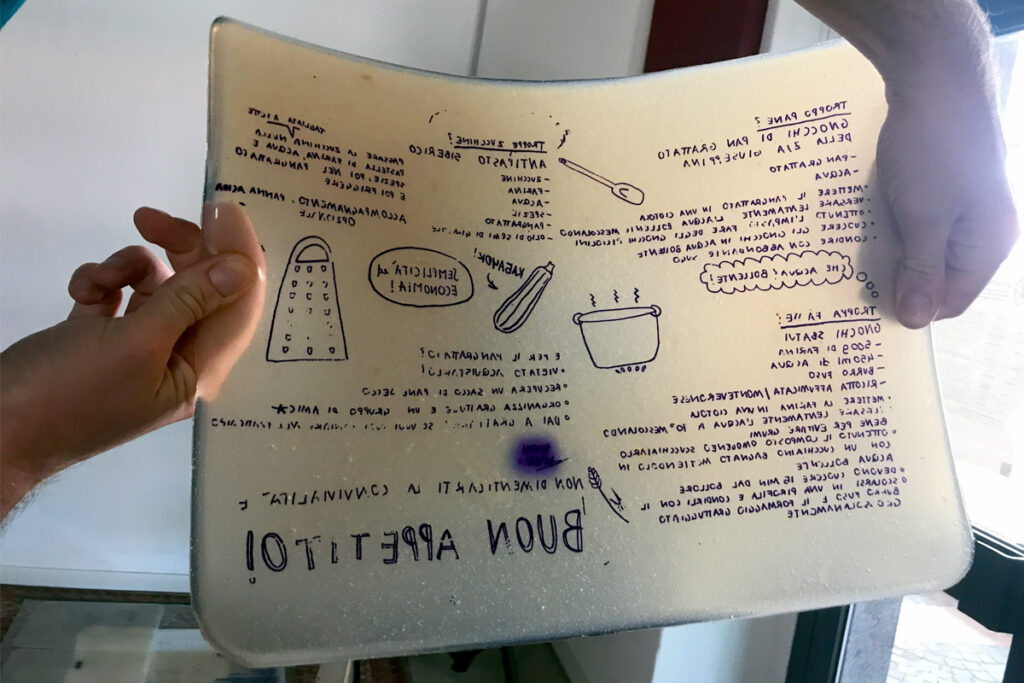 TROPPO PANE?
GNOCCHI DI PAN GRATTATO
DELLA ZIA GIUSEPPINA
- PAN GRATTATO
- ACQUA
• METTERE IL PANGRATTATO IN UNA CIOTOLA
• VERSARE LENTAMENTE L'ACQUA BOLLENTE MESCOLANDO
• OTTENUTO L'IMPASTO FARE DEGLI GNOCCHI PICCOLINI
• CUOCERE GLI GNOCCHI IN ACQUA
• CONDIRE CON ABBONDANTE SUGO
CHE ACQUA? BOLLENTE!
TROPPA
GNOCCHI SBATUI
- 500g DI FARINA
- 450ml DI ACQUA
- BURRO FUSO
- RICOTTA AFFUMICATA/MONTEVERONESE
• METTERE LA FARINA IN UNA CIOTOLA
LENTAMENTE L'ACQUA A 10° MESCOLANDO
BENE PER EVITARE GRUMI
• OTTENUTO IL COMPOSTO OMOGENEO
CON UN CUCCHIAINO BAGNATO METTENDOLO IN
ACQUA BOLLENTE
• DEVONO CUOCERE 15 MIN DAL BOLLORE
• SCOLARSI IN UNA PIROFILA E CONDIRLI CON IL
BURRO FUSO E IL FORMAGGIO GRATTUGGIATO
TROPPE ZUCCHINE?
ANTIPASTO SIBERICO
- ZUCCHINE
- FARINA
- ACQUA
- SPEZIE
- PANGRATTATO
- OLIO DI SEMI DI
TAGLIATA A FETTE
PASSARE LA ZUCCHINA NELLA
PASTELLA DI FARINA, ACQUA E
SPEZIE, POI NEL PANGRATTATO
E POI FRIGGERE
ACCOMPAGNAMENTO: PANNA ACIDA
KABAHOK!
SEMPLICITÀ ed
ECONOMIA!
E PER IL PANGRATTATO?
• VIETATO ACQUISTARLO!
• RECUPERA UN SACCO DI PANE SECCO
• ORGANIZZA E UN GRUPPO DI AMICI*
NON DIMENTICARTI LA CONVIVIALITÀ E
BUON APPETITO!